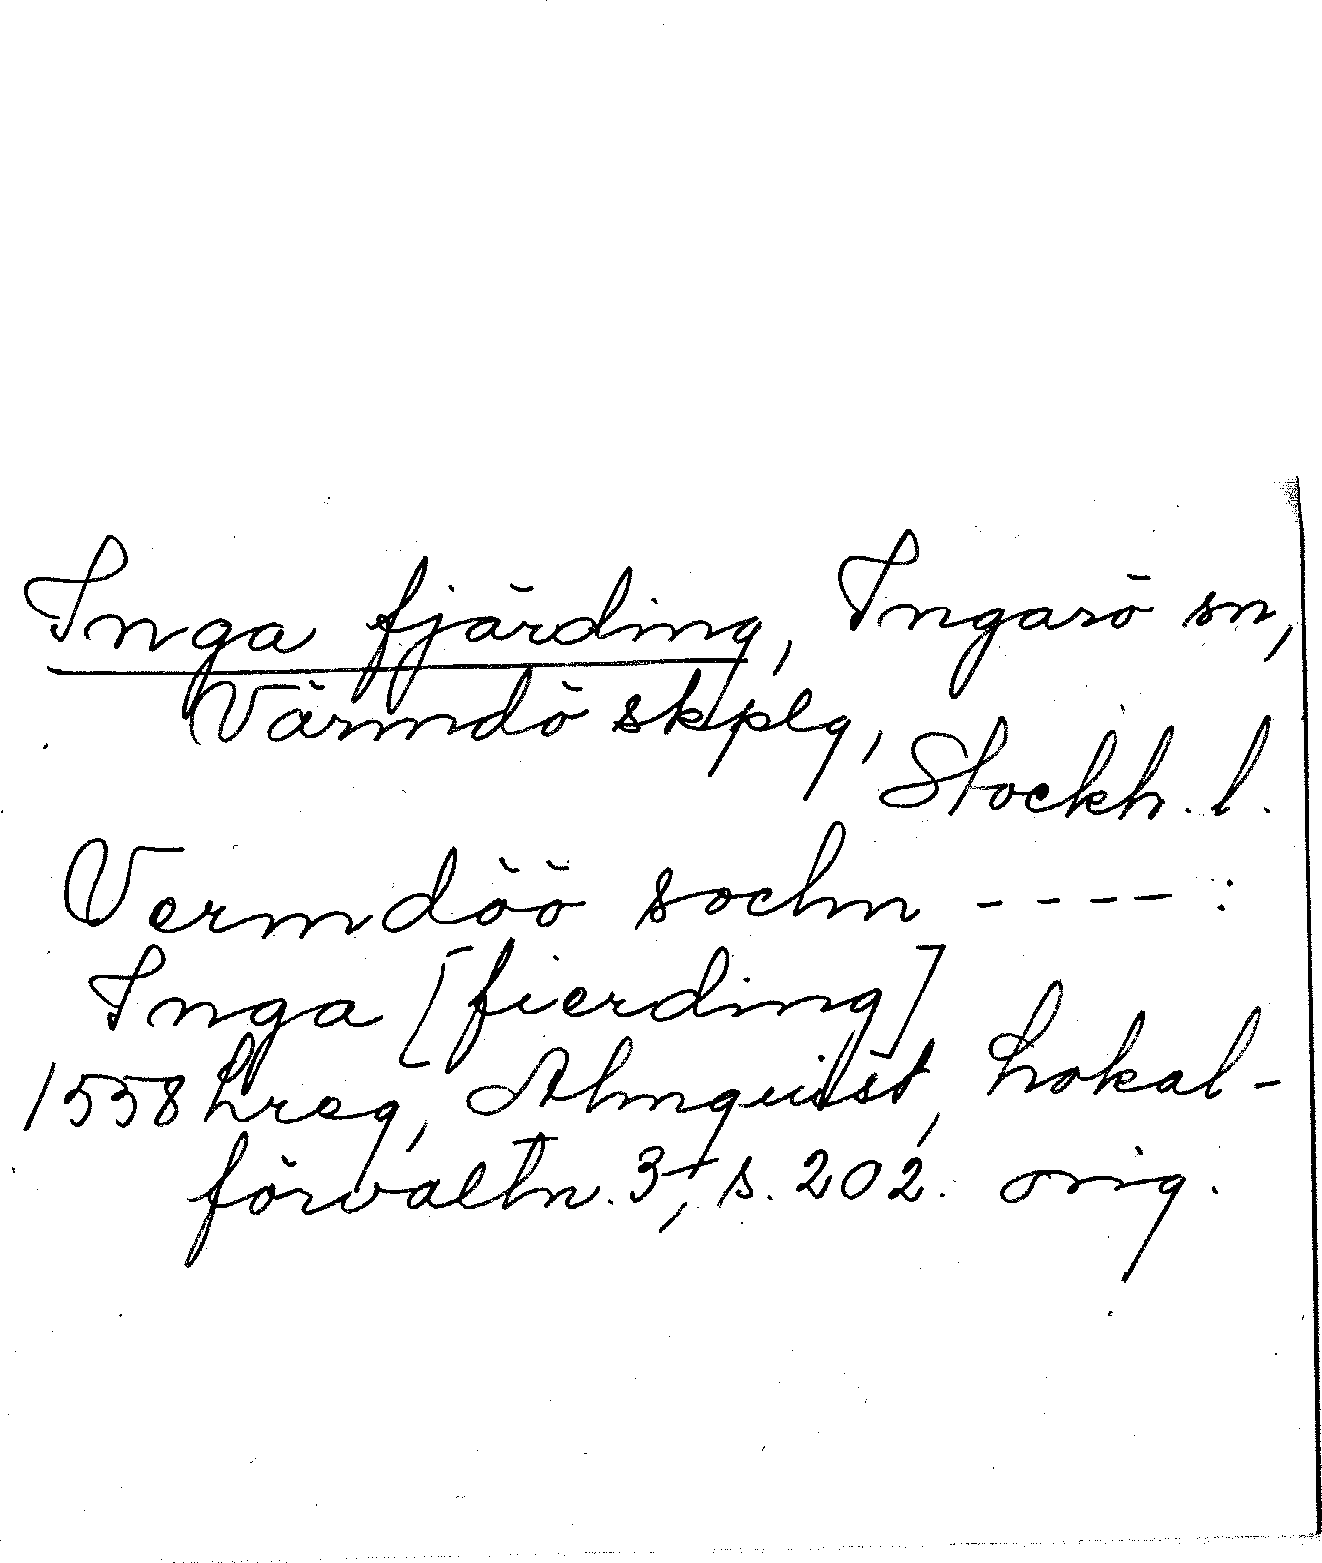 Inga fjärding, Ingarö sn,
Värmdö skplg,
Stockh. l.
Vermdöö sochn ---- :
Inga [fierding]
1558 hreg, Almquist, Lokal-
förvaltn. 3, s. 202. orig.